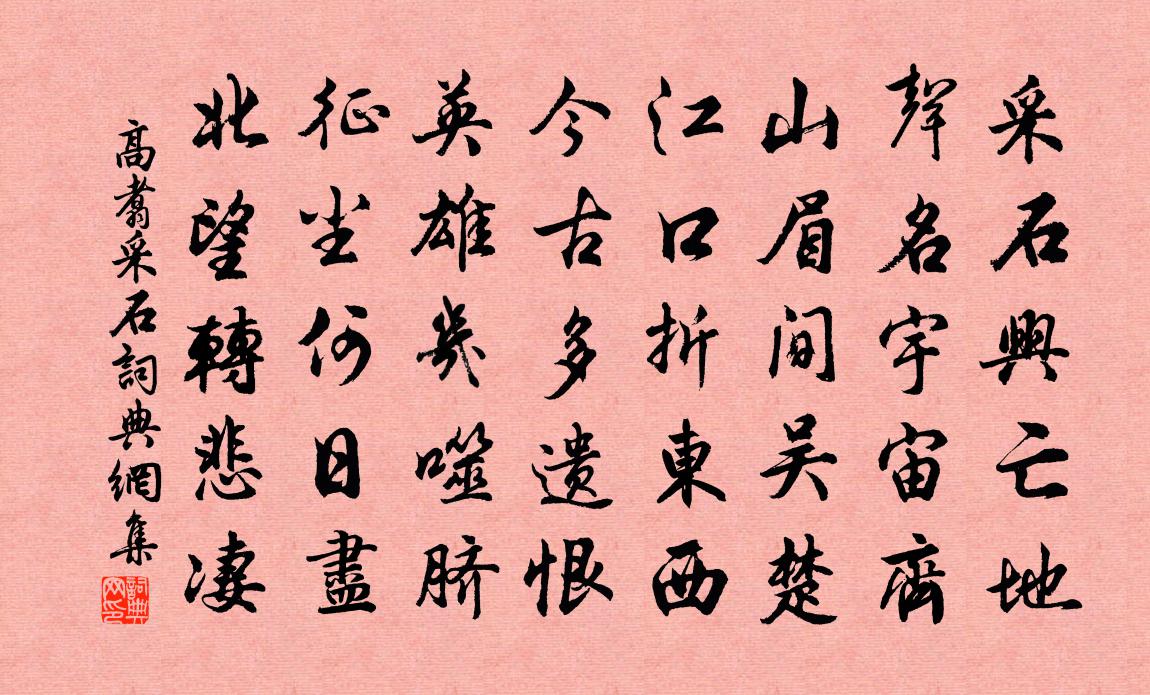 采石興亡地
聲名宇宙齊
山眉間吴楚
江口折東西
今古多遗恨
英雄幾噬脐
征尘何日盡
北望轉悲凄
高翥采石詞典網集
詞典網印